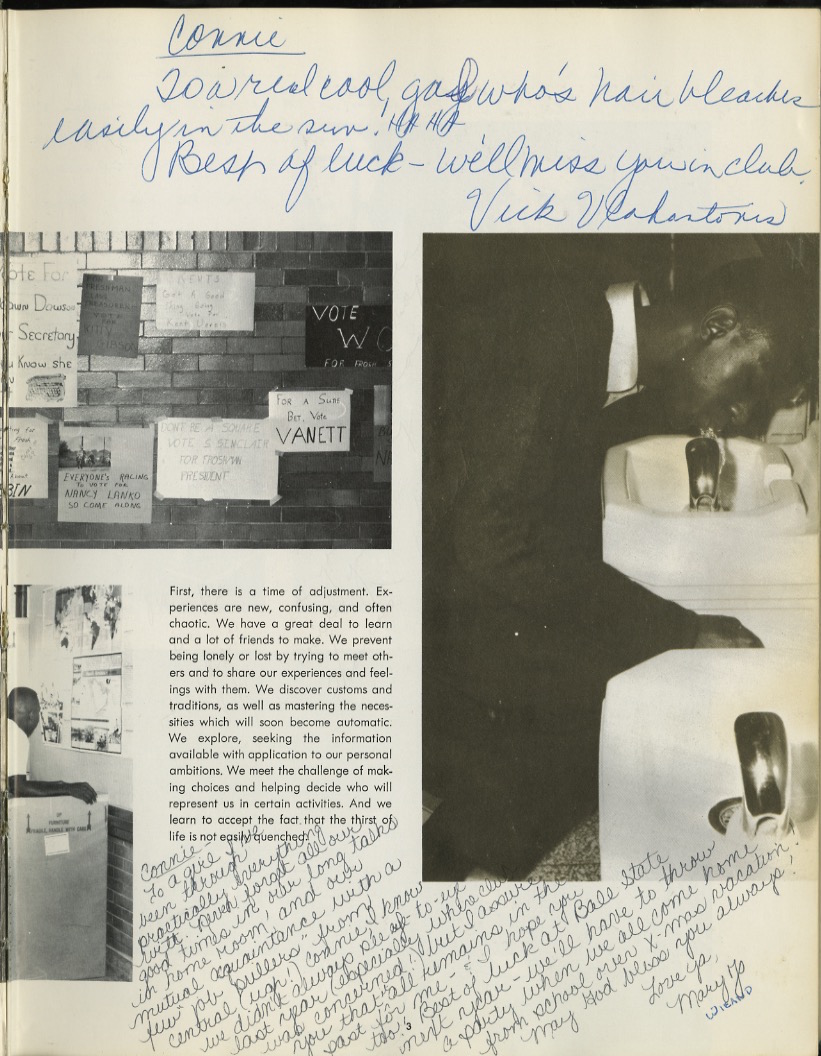 Connie
To a real cool, gal who's hair bleaches
easily in the sun! HA HA
Best of luck - we'll miss you in club.
Vick
ote For
Dawson
Secretary
Know she
FRESHMAN
CLASS
TREASURER
VOTE
FOR
VOTE
WO
FOR FROSH S
FOR A SURE
BET, VOTE
VANETT
DON'T BE A SQUARE
VOTE S. SINCLAIR
FOR FROSHMAN
PRESIDENT
EVERYONE'S RACING
TO VOTE FOR
NANCY LANKO
SO COME ALONG
BIN
First, there is a time of adjustment. Ex-
periences are new, confusing, and often
chaotic. We have a great deal to learn
and a lot of friends to make. We prevent
being lonely or lost by trying to meet oth-
ers and to share our experiences and feel-
ings with them. We discover customs and
traditions, as well as mastering the neces-
sities which will soon become automatic.
We explore, seeking the information
available with application to our personal
ambitions. We meet the challenge of mak-
ing choices and helping decide who will
represent us in certain activities. And we
learn to accept the fact that the thirst of
life is not easily quenched.
UP
FURNITURE
HANDLE WITH CARE
Connie -
To a girl I've
been through
practically everything
with. Never forget all our
good times in our long talks
in home room, and our
mutual acquaintance with a
few "pr. pullers" from
central (ugh!) Connie, I know
we didn't always see eye to eye
last year (especially where club
was concerned!) but I assure
you that all remains in the
past for me - & I hope you
too! Best of luck at Ball State
next year - we'll have to throw
a party when we all come home
from school over X-mas vacation!
May God bless you always!
Love ya,
Mary Jo
WIEAND
3